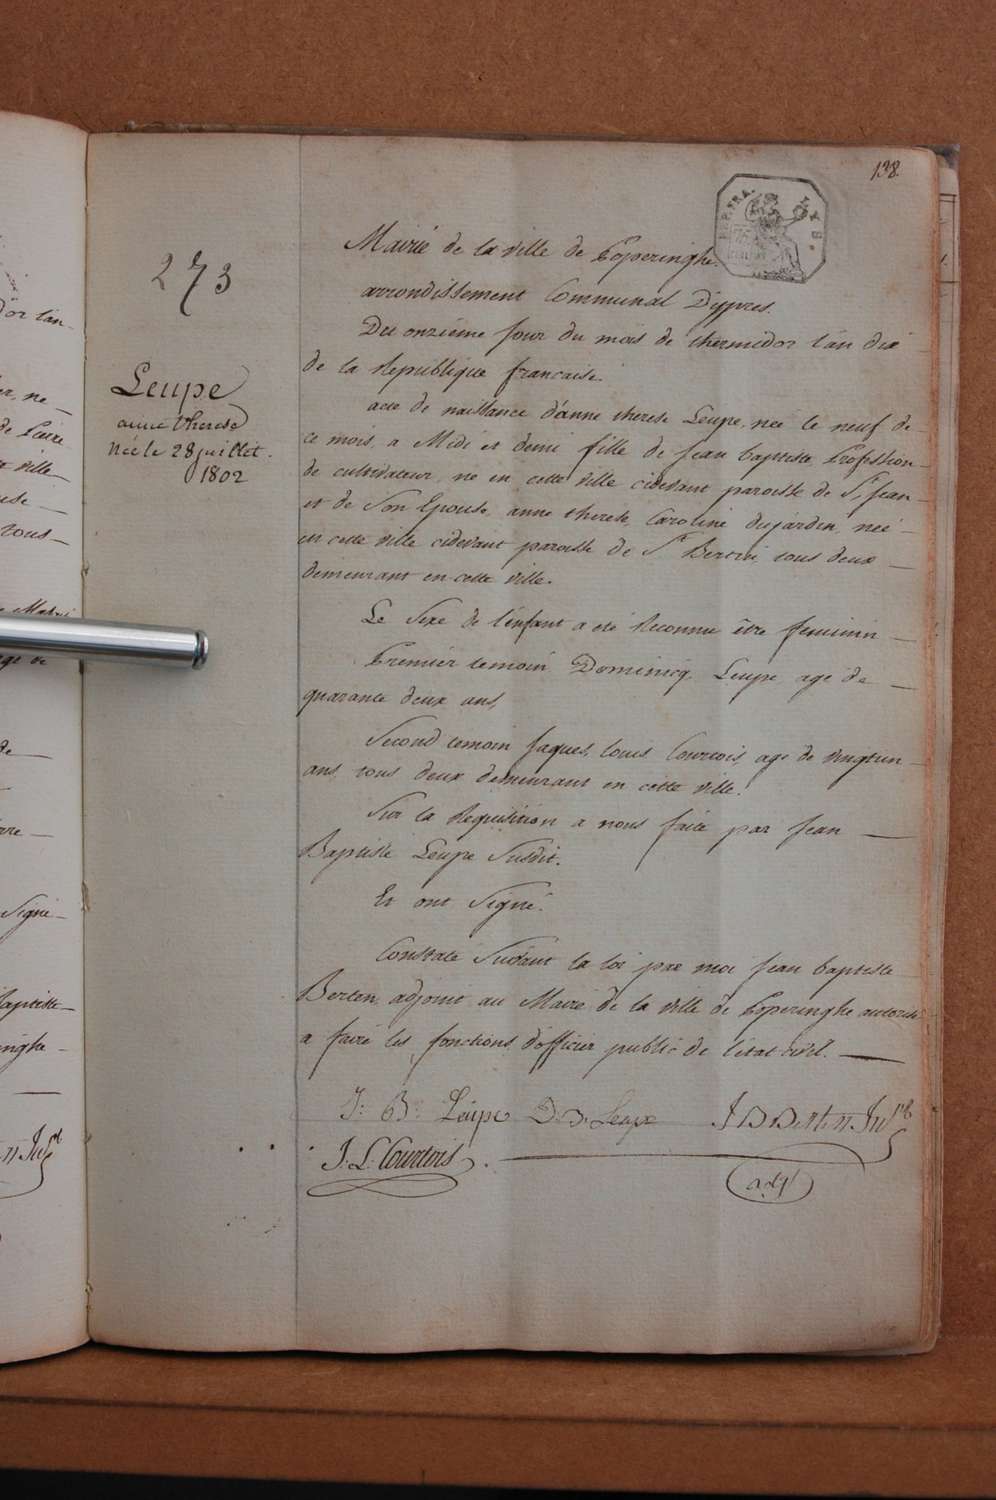 138.
REP. FRA.
273
Mairié de la ville de Poperinghe.
arrondissement Communal D'ypres.
Du onzième Jour du mois de thermidor l'an dix
de la Republique francaise.
Leupe
anne therese
Née le 28 juillet.
1802
acte de naissance d'anne therese Leupe, neé le neuf de
ce mois, a Midi et demi fille de Jean baptiste Profession
de cultivateur, né en cette ville cidevant paroisse de St Jean
et de Son Epouse, anne therese Caroline dujardin, neé
en cette ville cidevant paroisse de St Bertin, tous deux
demeurant en cette ville.
Le Sexe de l'enfant a eté Reconnu être feminin
Premier temoin Dominicq Leupe agé de
quarante deux ans,
Second temoin Jaques, louis Courtois, agé de vingt un
ans, tous deux demeurant en cette ville.
Sur la Requisition a nous faite par Jean
Baptiste Leupe Susdit.
Et ont Signé.
Constaté Suivant la loi par moi Jean baptiste
Berten adjoint au Maire de la ville de Poperinghe autorisé
a faire les fonctions d'officier public de l'état-civil.
J: B: Leupe D. D. Leupe J B Berten
J: L: Courtois.
adjt